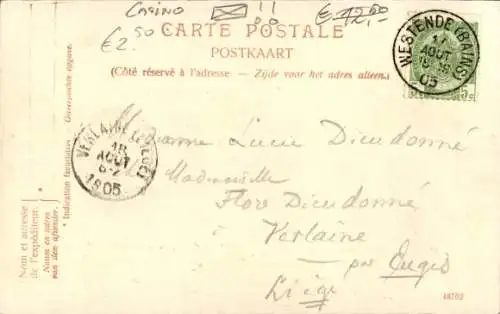 Casino !!
€ 12,50
€2.50
CARTE POSTALE
POSTKAART
(Côté réservé à l'adresse — Zijde voor het adres alleen.)
WESTENDE (BAINS)
AOUT
05
5
VERLAINE
18
AOUT
1905
Lucie Dieudonné
Mademoiselle
Flore Dieudonné
Verlaine
par Engis
Liége
Nom et adresse
de l'expéditeur.
Naam en adres
van den afzender.
* Indication facultative.
14762